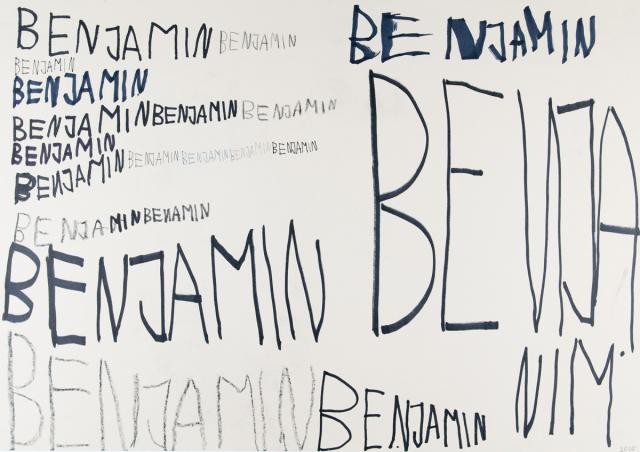 BENJAMIN BENJAMIN
BENJAMIN
BENJAMIN
BENJAMIN BENJAMIN BENJAMIN
BENJAMIN
BENJAMIN BENJAMIN BENJAMIN BENJAMIN BENJAMIN
BENJAMIN BENAMIN
BENJAMIN
BENJAMIN BENJAMIN
BENJAMIN
BENJA
NIM